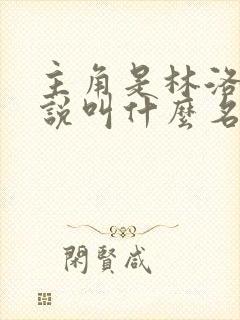 主角是林洛
說叫什麼名
閑賢咸